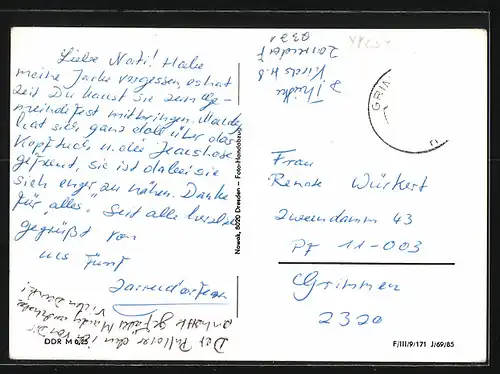 Liebe Nati! Habe
meine Jacke vergessen, es hat
Zeit Du kannst sie zum Ge-
meindefest mitbringen. Mandy
hat sich ganz doll über das
Kopftuch u. die Jeanshose
gefreut, sie ist dabei sie
sich enger zu nähen. Danke
für "alles". Seid alle herzlich
gegrüßt von
uns fünf
Zarrendorfern
Der Pullover den ich von Dir
anhatte gefällt Mandy
Vielen Dank!
DDR M 0,25
Nowak, 8020 Dresden — Foto-Handabzug
Zarrendorf
2331
GRIM
Frau
Renate Würkert
Zweendamm 43
PF 11-003
Grimmen
2320
F/III/9/171 J/69/85